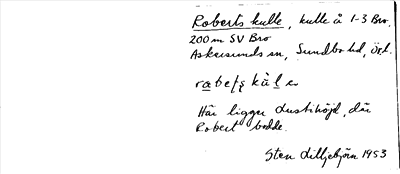 Roberts kulle, kulle å 1-3 Bro.
200 m SV Bro
Askersunds sn, Sundbo hd, Ör l.
Här ligger Lustihöjd, där
Robert bodde.
Sten Lilljebjörn 1953